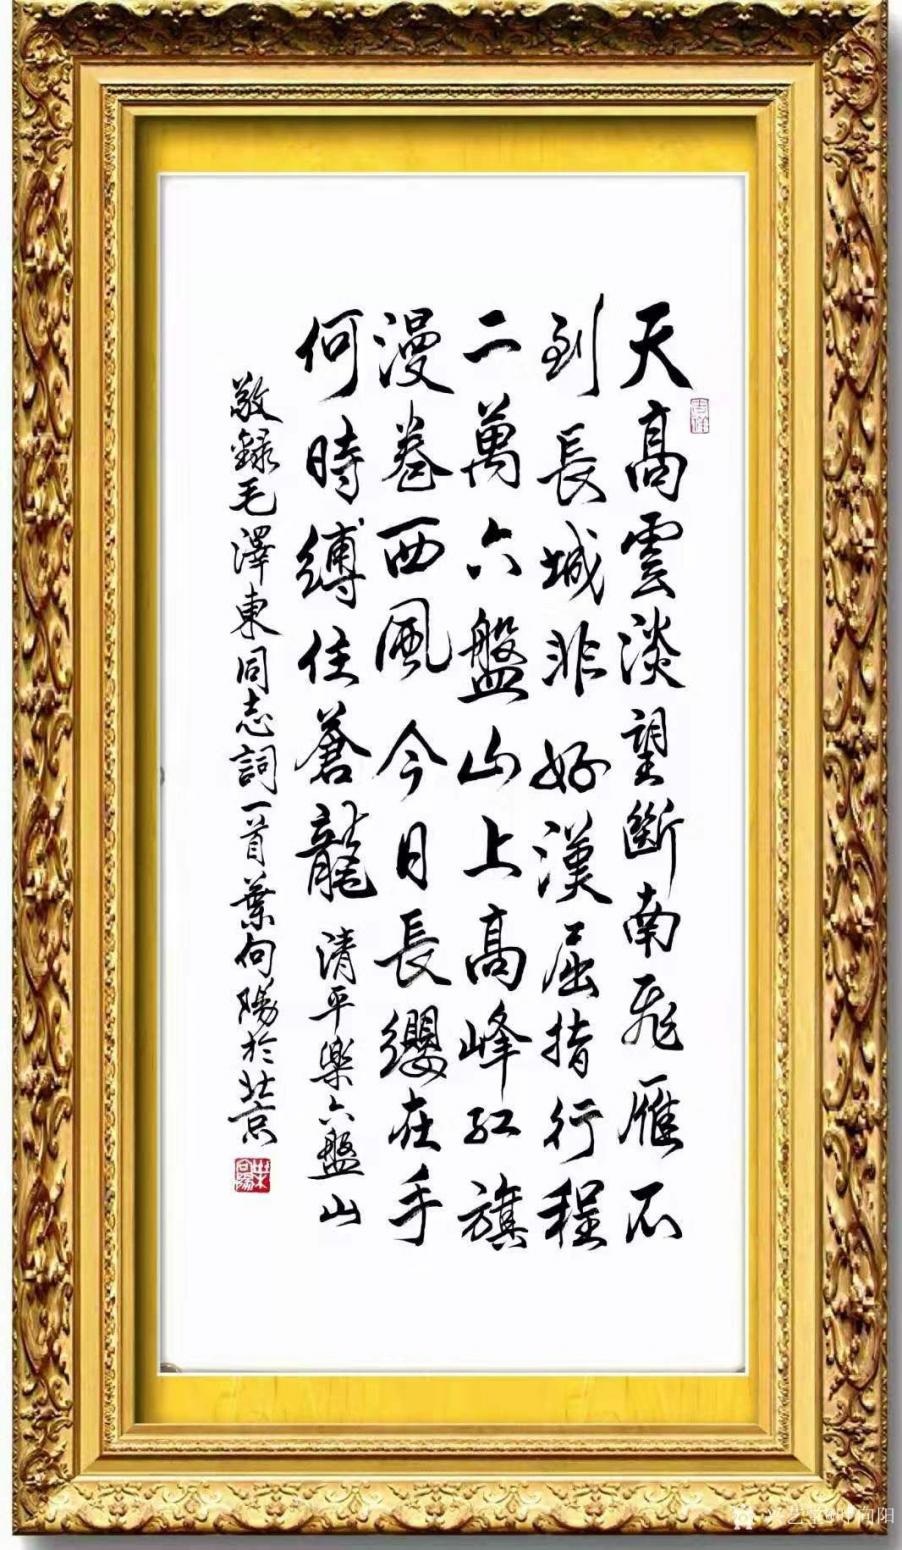 天高雲淡望斷南飛雁不
到長城非好漢屈指行程
二萬六盤山上高峰紅旗
漫卷西風今日長纓在手
何時縛住蒼龍清平樂六盤山
敬録毛澤東同志詞一首葉向陽於北京
葉向陽